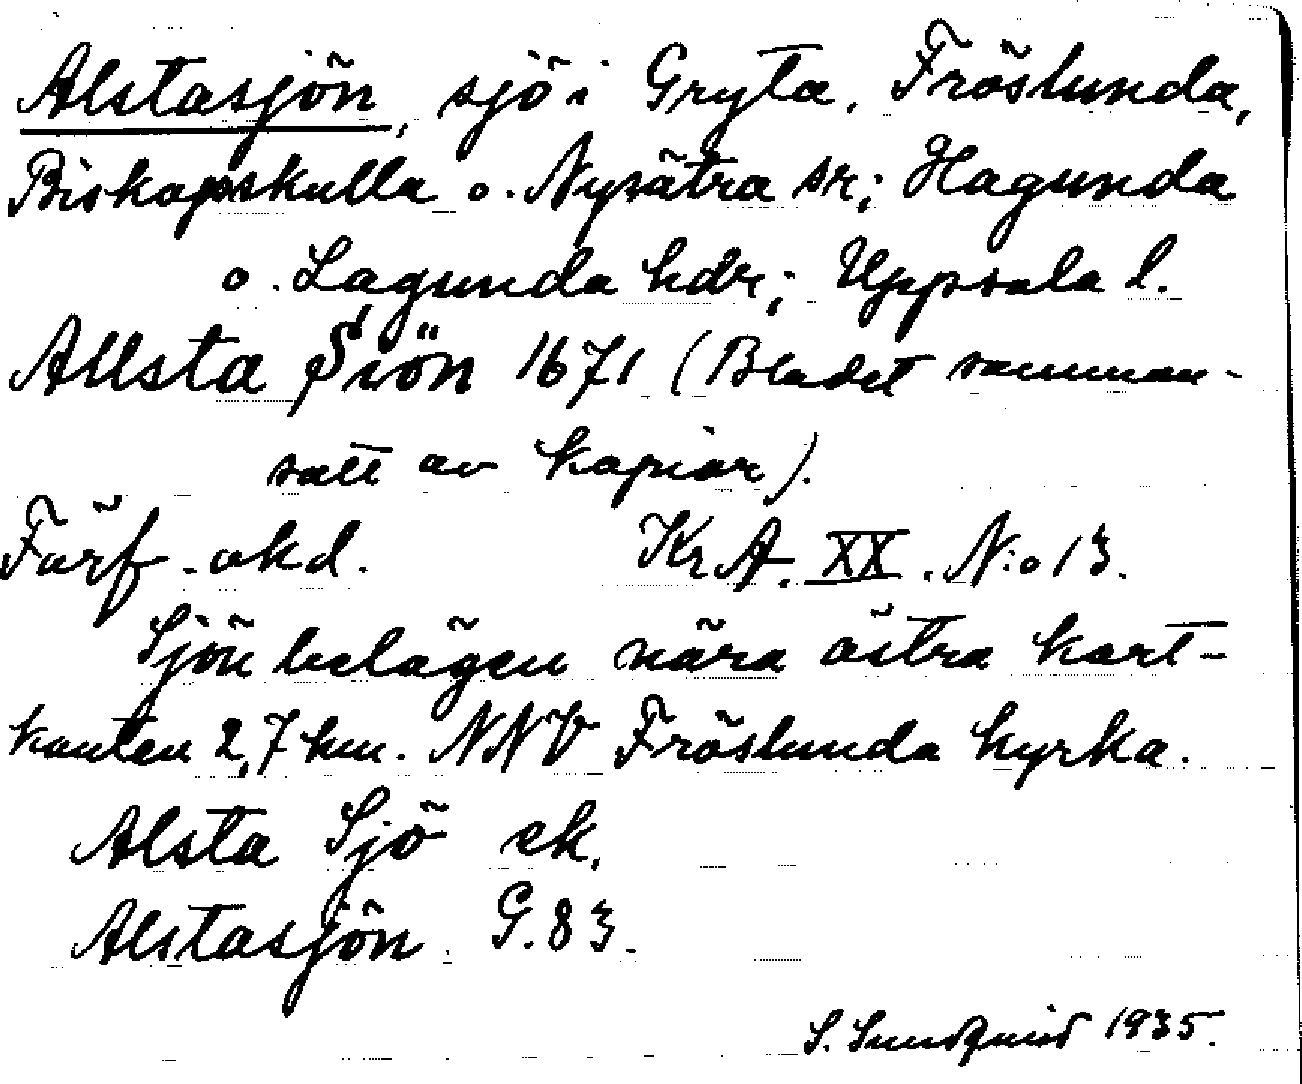 Alstasjön, sjö i Gryta, Fröslunda,
Biskopskulla o. Nysätra sr; Hagunda
o. Lagunda hdr; Uppsala l.
Allsta Siön 1671 (Bladet samman-
satt av kopior).
Förf. okd. Kr A. XX. N:o 13.
Sjön belägen nära östra kart-
kanten 2,7 km. NNV Fröslunda kyrka.
Alsta Sjö ek.
Alstasjön G. 83.
S. Sundquist 1935.